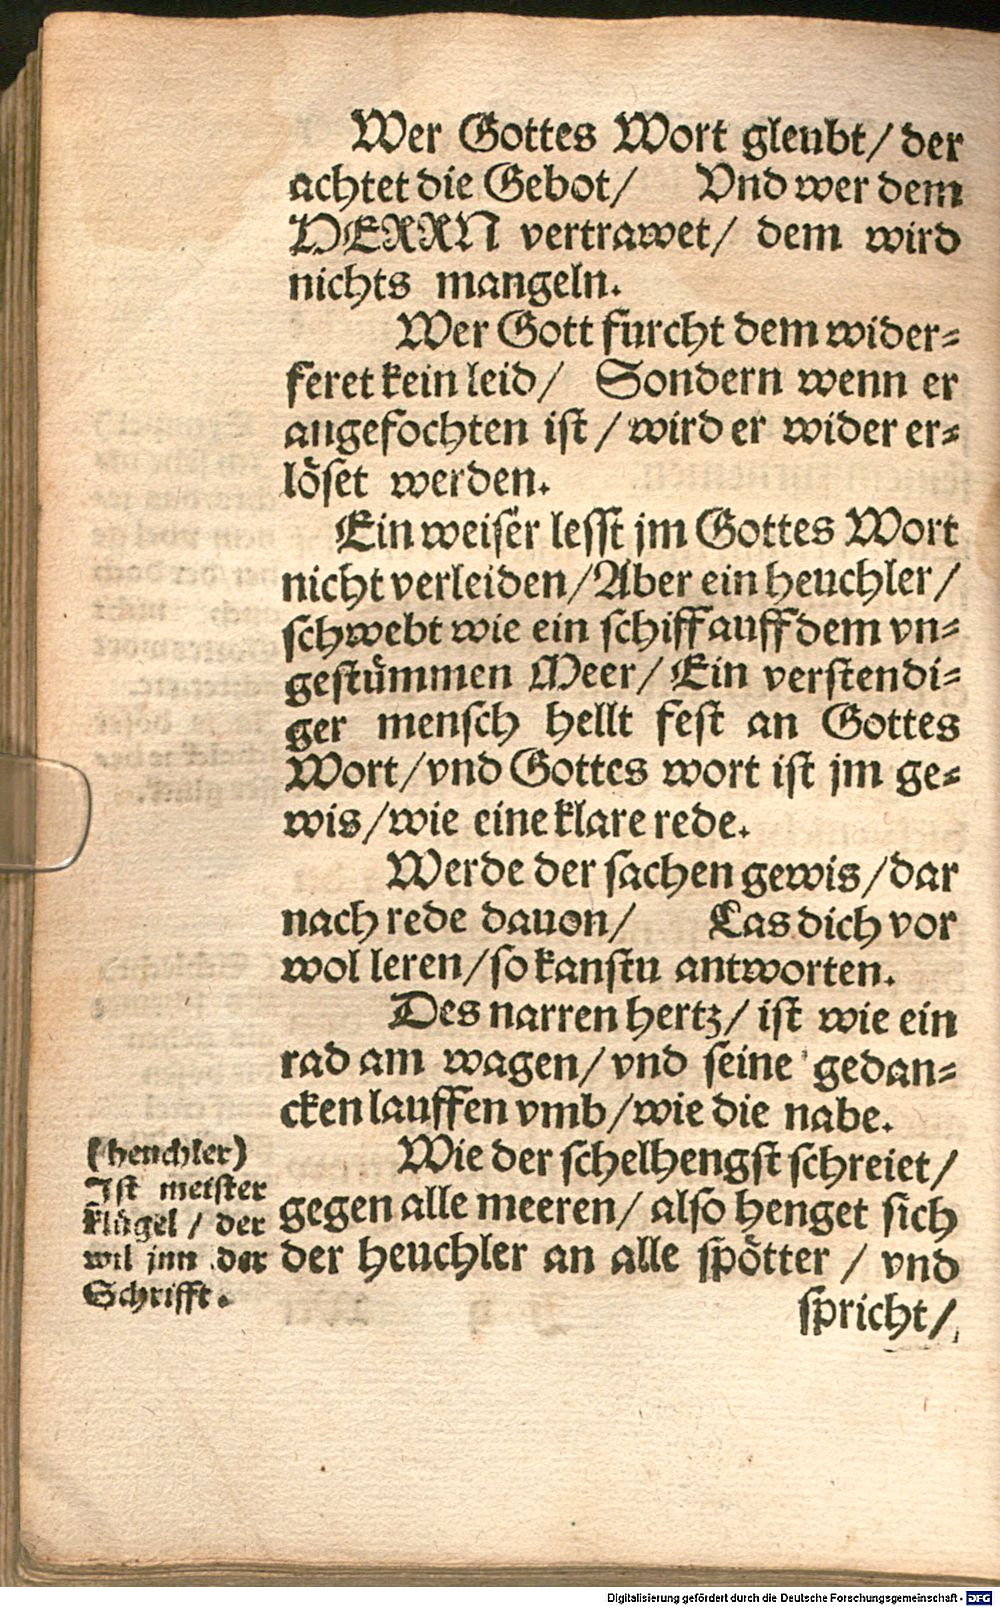 Wer Gottes Wort gleubt/ der
achtet die Gebot/ Vnd wer dem
HERRN vertrawet/ dem wird
nichts mangeln.
Wer Gott furcht dem wider=
feret kein leid/ Sondern wenn er
angefochten ist / wird er wider er=
löset werden.
Ein weiser lesst jm Gottes Wort
nicht verleiden/Aber ein heuchler/
schwebt wie ein schiff auff dem vn=
gestümmen Meer/ Ein verstendi=
ger mensch hellt fest an Gottes
Wort/vnd Gottes wort ist jm ge=
wis/wie eine klare rede.
Werde der sachen gewis/dar
nach rede dauon/ Las dich vor
wol leren/so kanstu antworten.
Des narren hertz/ ist wie ein
rad am wagen/vnd seine gedan=
cken lauffen vmb/wie die nabe.
Wie der schelhengst schreiet/
gegen alle meeren/ also henget sich
der heuchler an alle spötter / vnd
spricht/
(heuchler)
Ist meister
klügel / der
wil jnn der
Schrifft.
Digitalisierung gefördert durch die Deutsche Forschungsgemeinschaft - DFG